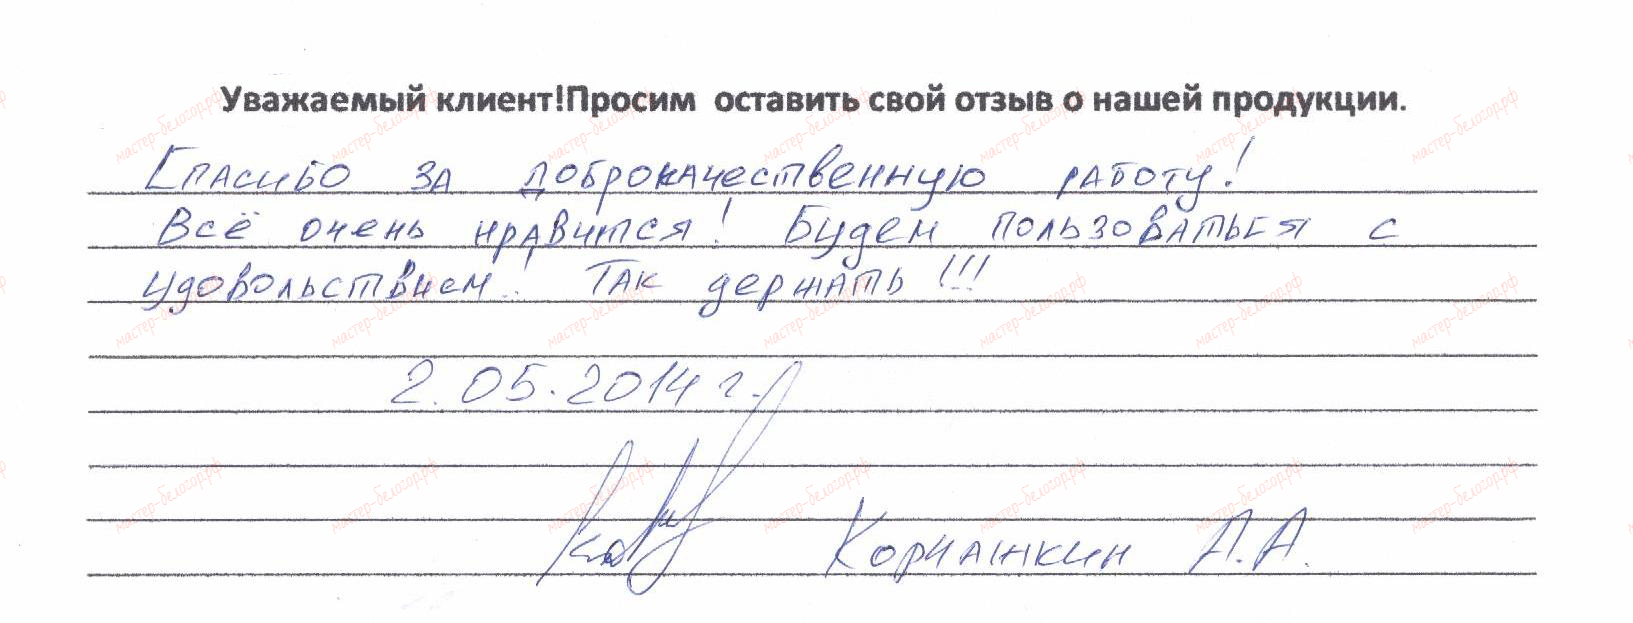 Уважаемый клиент!Просим оставить свой отзыв о нашей продукции.
Спасибо за доброкачественную работу!
Всё очень нравится! Будем пользоваться с
удовольствием! Так держать!!!
2.05.2014 г.
А.А.
мастер-белогор.рф